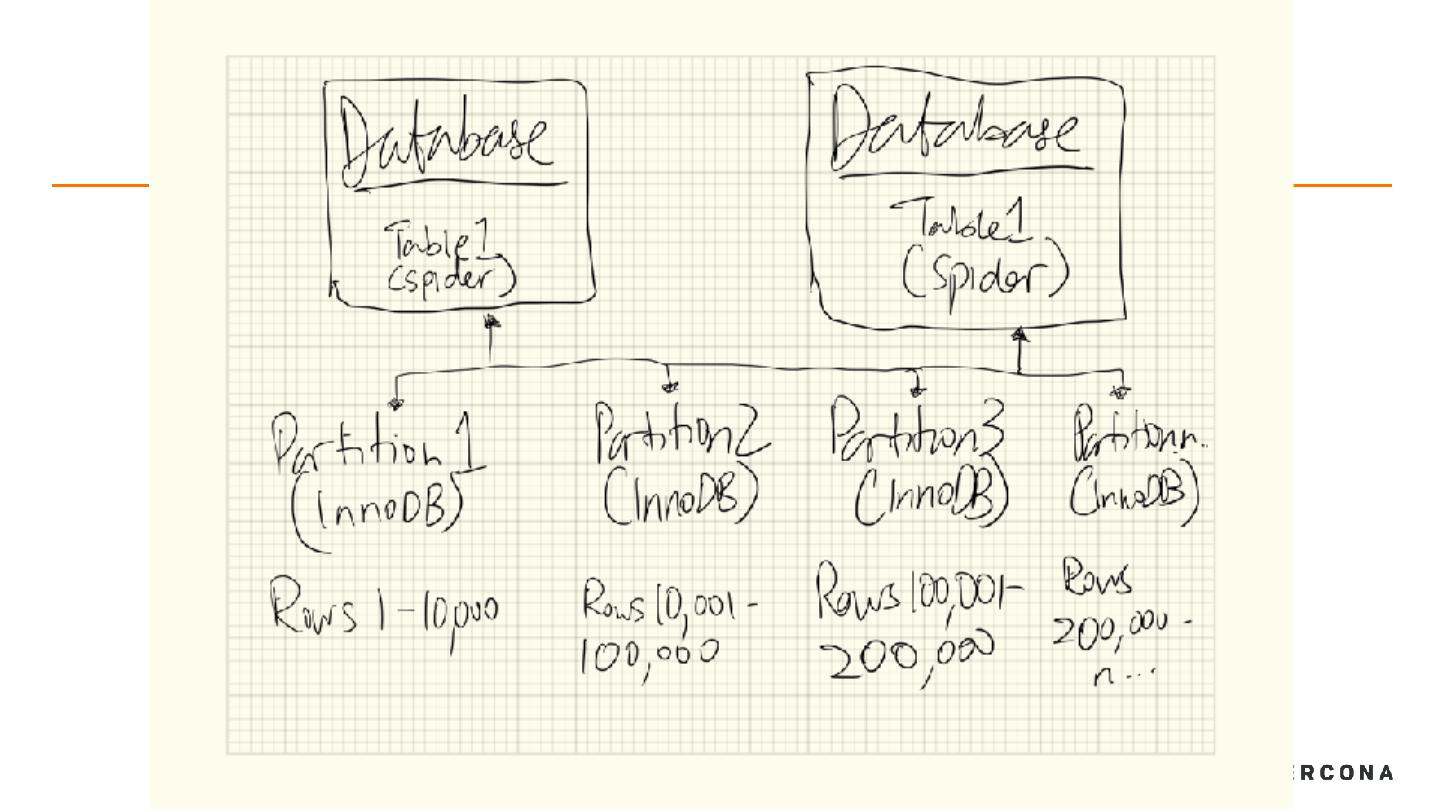 Database
Table1
(spider)
Database
Table1
(Spider)
Partition1
(InnoDB)
Rows 1-10,000
Partition2
(InnoDB)
Rows 10,001-
100,000
Partition3
(InnoDB)
Rows 100,001-
200,000
Partitionn..
(InnoDB)
Rows
200,000-
n...
RCONA